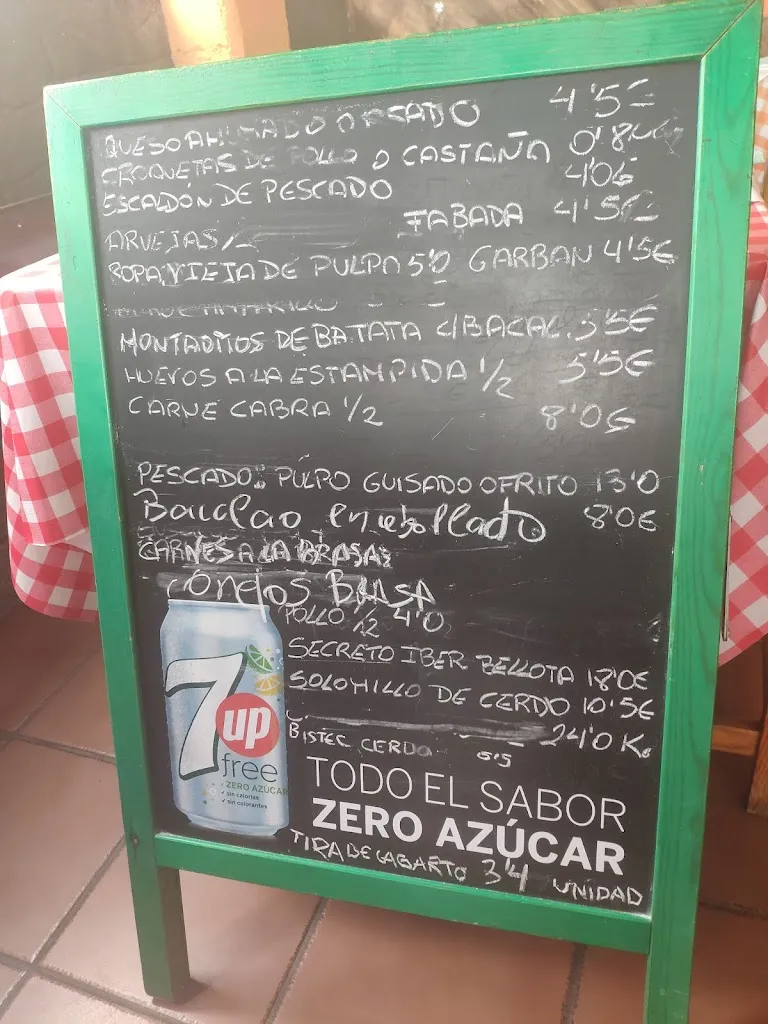 QUESO AHUMADO O ASADO 4'5€
CROQUETAS DE POLLO O CASTAÑA 0'8
ESCALDÓN DE PESCADO 4'0€
FABADA 4'5€
ARVEJAS
ROPA VIEJA DE PULPO 5'0 GARBAN 4'5€
MONTADITOS DE BATATA C/BACAL. 5'5€
HUEVOS A LA ESTAMPIDA 1/2 5'5€
CARNE CABRA 1/2 8'0€
PESCADO: PULPO GUISADO O FRITO 13'0
Bacalao encebollado 8'0€
CARNES A LA BRASA:
Conejos BRASA
POLLO 1/2 4'0
SECRETO IBER BELLOTA 18'0€
SOLOMILLO DE CERDO 10'5€
24'0 K.
BISTEC CERDO 6'5
7up free
ZERO AZÚCAR
✓ sin calorías
✓ sin colorantes
TODO EL SABOR
ZERO AZÚCAR
TIRA DE LAGARTO 3'4 UNIDAD